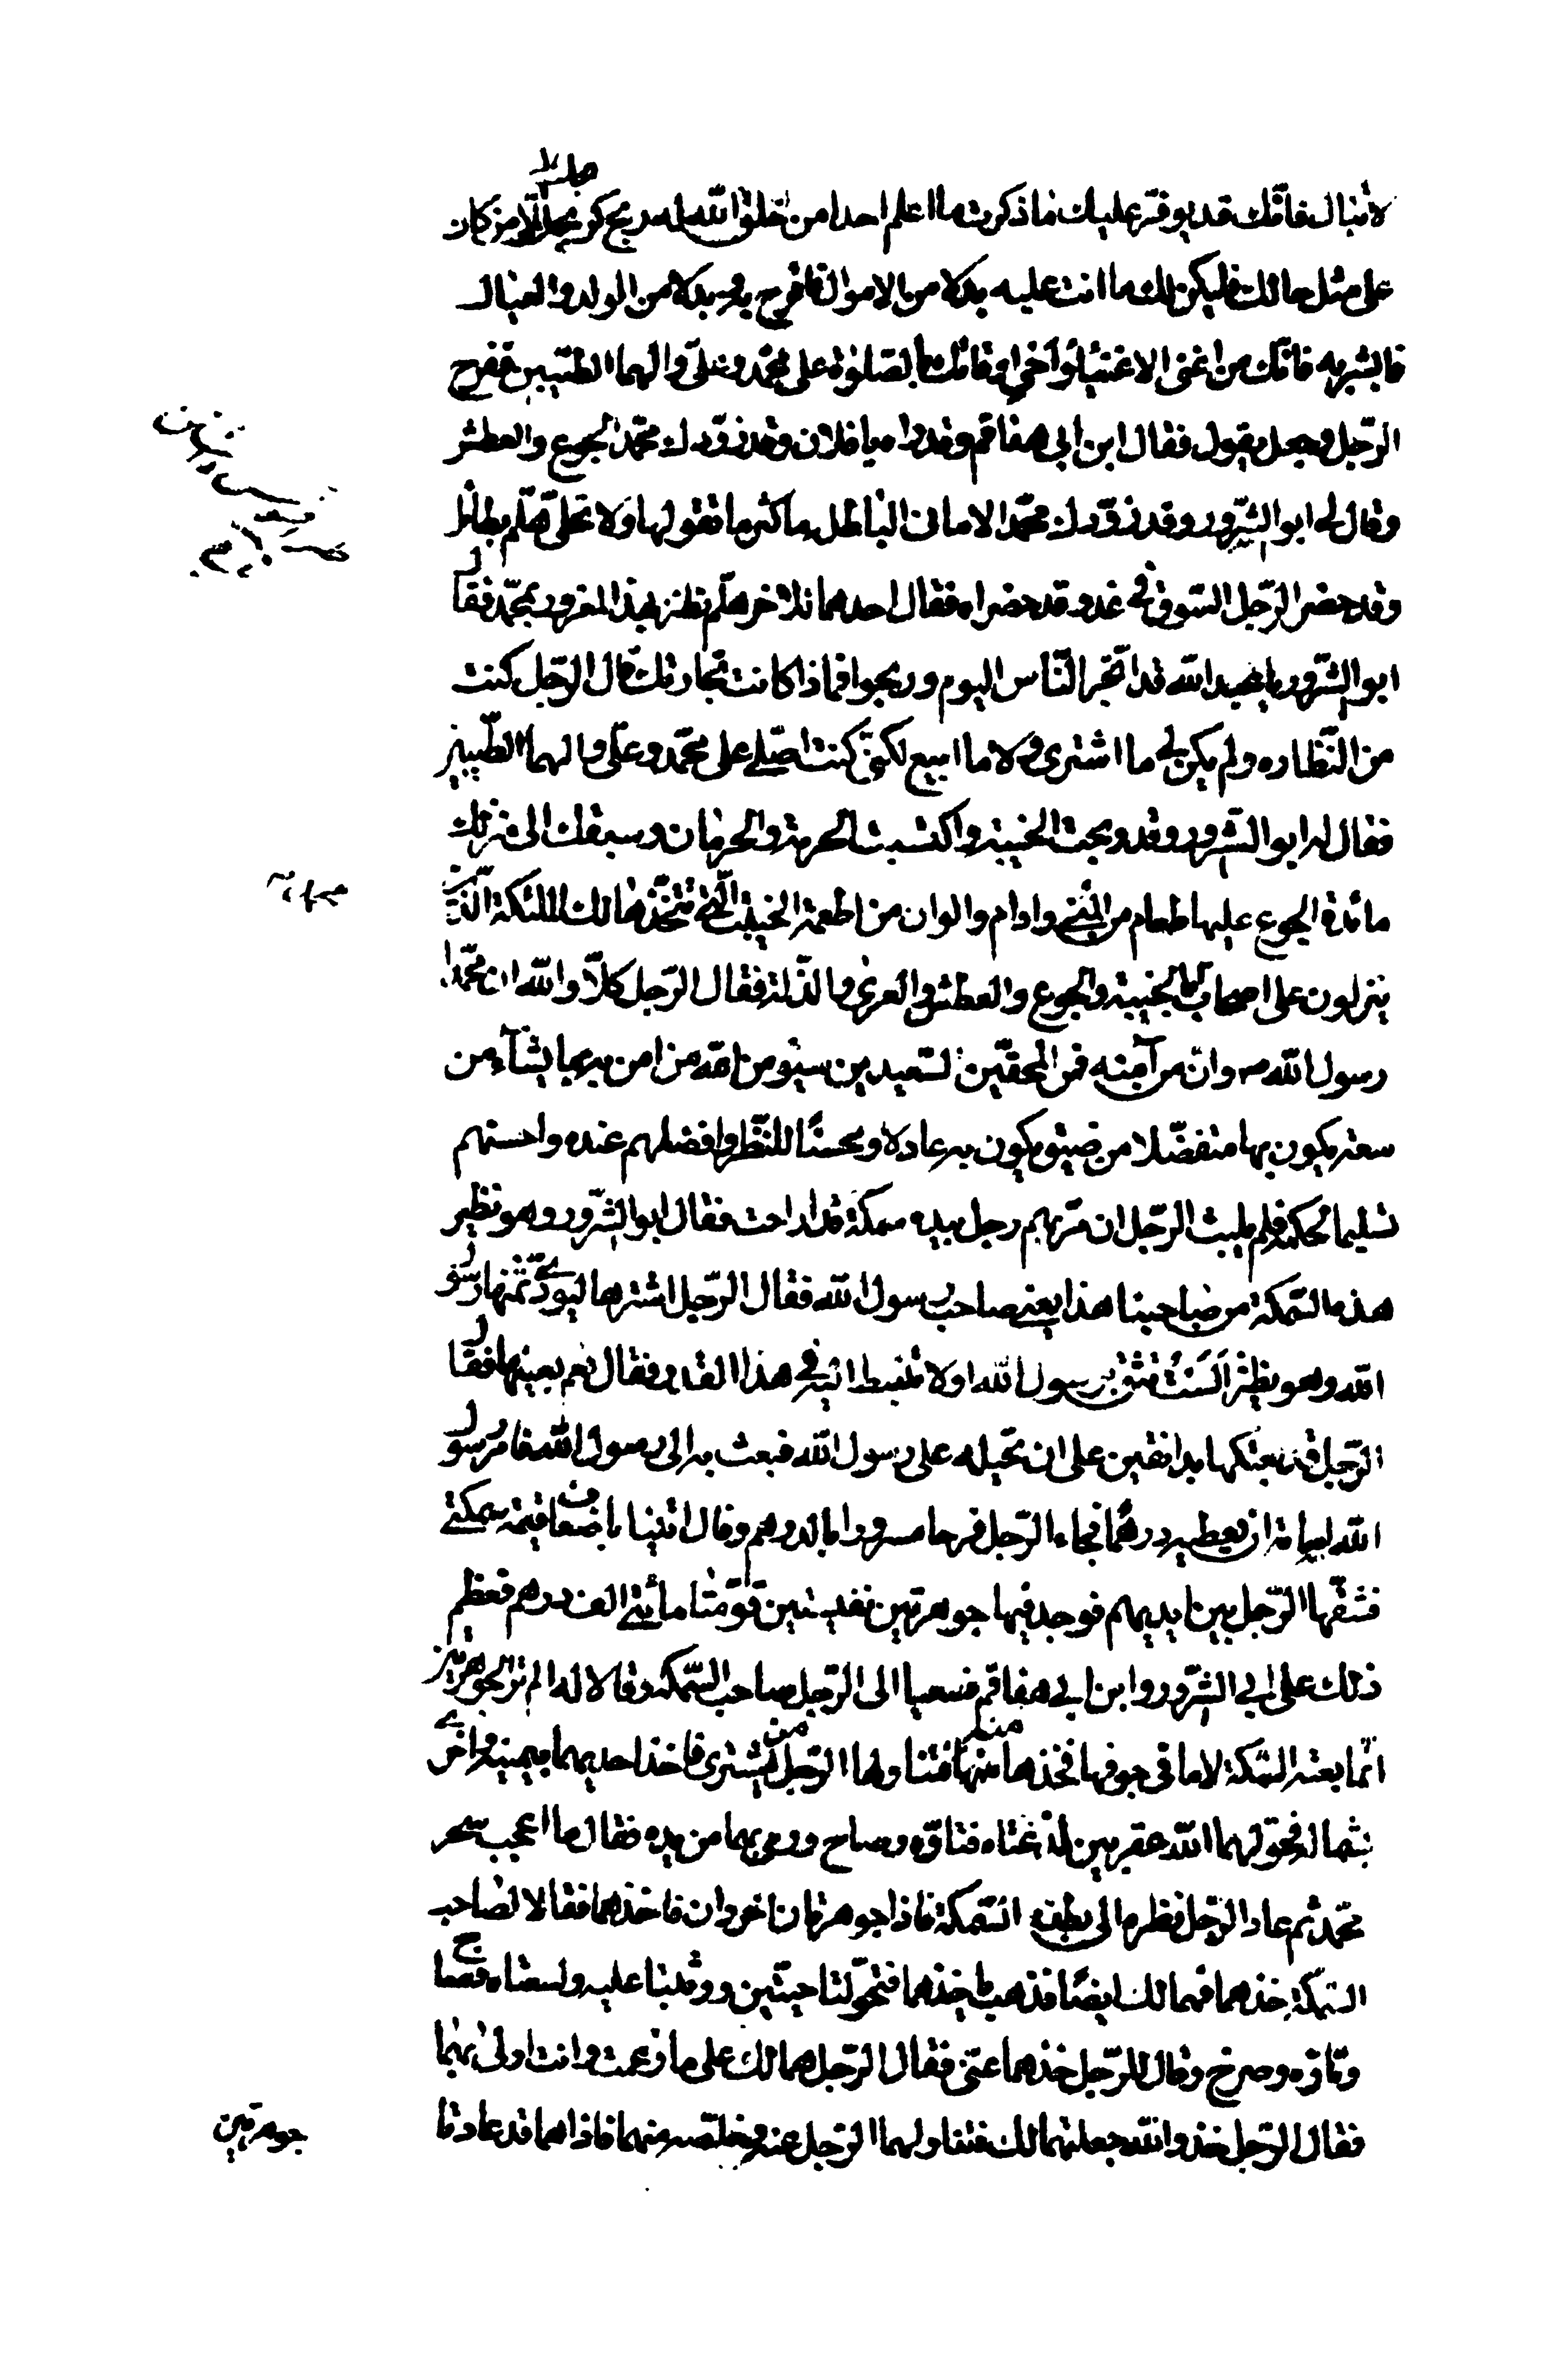 لا تبال فانّك قد يوفّر عليك ما ذكرت ما اعلم احدا من خلق الله له ربح كربحك الا من كان
على مثل حالك فليكن لك ما انت عليه بدلا من الاموال فافرح به وبدلا من الولد والعيال
فابشر به فانّك من اغنى الاغنياء واحي اوقاتك بالصلوة على محمّد وعلىّ والهما الطيّبين ففرح
الرّجل وجعل يقول فقال ابن ابي هفاقم وقد راه يا فلان وقد زوّدك محمّد الجوع والعطش
وقال له ابو الشّرور وقد زوّدك محمّد الامانى الباطلة ما اكثر ما تقولها ولا تحلى بطائل
وقد حضر الرّجل السّوق فى غد وقد حضراه فقال احدهما للاخر هلّم نطنز بهذا المغرور بمحمّد فقال
ابو الشّرور يا عبد الله قد اتجر النّاس اليوم وربحوا فماذا كانت تجارتك قال الرّجل كنت
من النّظاره ولم يكن لى ما اشترى ولا ما ابيع لكنى كنت اصلّى على محمّد وعلىّ والهما الطّيبين
فقال له ابو الشّرور وقد ربحت الخيبة واكتسبت الحرمة والحرمان وسبقك الى منزلك
مائدة الجوع عليها طعام من المنى وادام والوان من اطعمة الخيبة التى تتخذها لك الملئكة الذين
ينزلون على اصحاب محمد بالخيبة والجوع والعطش والعرى والذلة فقال الرّجل كلّا والله ان محمّدا
رسول الله ص وانّ من آمن به فمن المحقّين السعيدين سيؤمن الله من امن به بما يشآء من
سعة يكون بها متفضّلا من ضيق يكون به عادلا ومحسنًا للنّظر وافضلهم عنده واحسنهم
تسليما لحكمه فلم يلبث الرّجل ان مرّ بهم رجل بيده سمكة قد اراحت فقال ابو الشّرور وهو يطنز
هذه السّمكة من صاحبنا هذا يعنى صاحب رسول الله فقال الرّجل اشترها ليؤدّى ثمنها رسول
الله وهو يطنز اَلَسْتَ تثق برسول الله اولا تنبسط اليه فى هذا القدر فقال نعم بعينها فقال
الرّجل قد بعتكها بدانقين على ان تحيله على رسول الله فبعث به الى رسول الله فامر رسول
الله اسامة ان يعطيه درهما فجاء الرّجل فرحا مسرورا بالدرهم وقال اثنينا باضعاف قيمة سمكتى
فشقّها الرّجل بين ايديهم فوجد فيها جوهرتين نفيستين قوّمتا مأتى الف درهم فعظم
ذلك على ابى الشّرور وابن ابى هفاقم فسعيا الى الرّجل صاحب السّمكة وقالا له الم تر الجوهرتين
انّما بعته السّمكة لا ما فى جوفها فخذهما منه فتناولهما الرّجل من المشترى فاخذ احديهما بيمينه واخرى
بشماله فحوّلهما الله عقربين لدغتاه فتاوّه وصاح ورمى بهما من يده فقال ما اعجب سحر
محمّد ثم عاد الرّجل فنظره الى بطن السّمكة فاذا جوهرتان اخروان فاخذهما فقالا لصاحب
السّمكة خذهما فهما لك ايضًا فذهب ياخذهما فتحوّلتا حيّتين ووثبتا عليه ولسعتاه فصاح
وتاوّه وصرخ وقال للرّجل خذهما عنّى فقال الرّجل هما لك على ما زعمت وانت اولى بهما
فقال الرّجل خذ والله جعلتهما لك فتناولهما الرّجل عنه وخلّصه منهما فاذا هما قد عادتا
جوهرتين